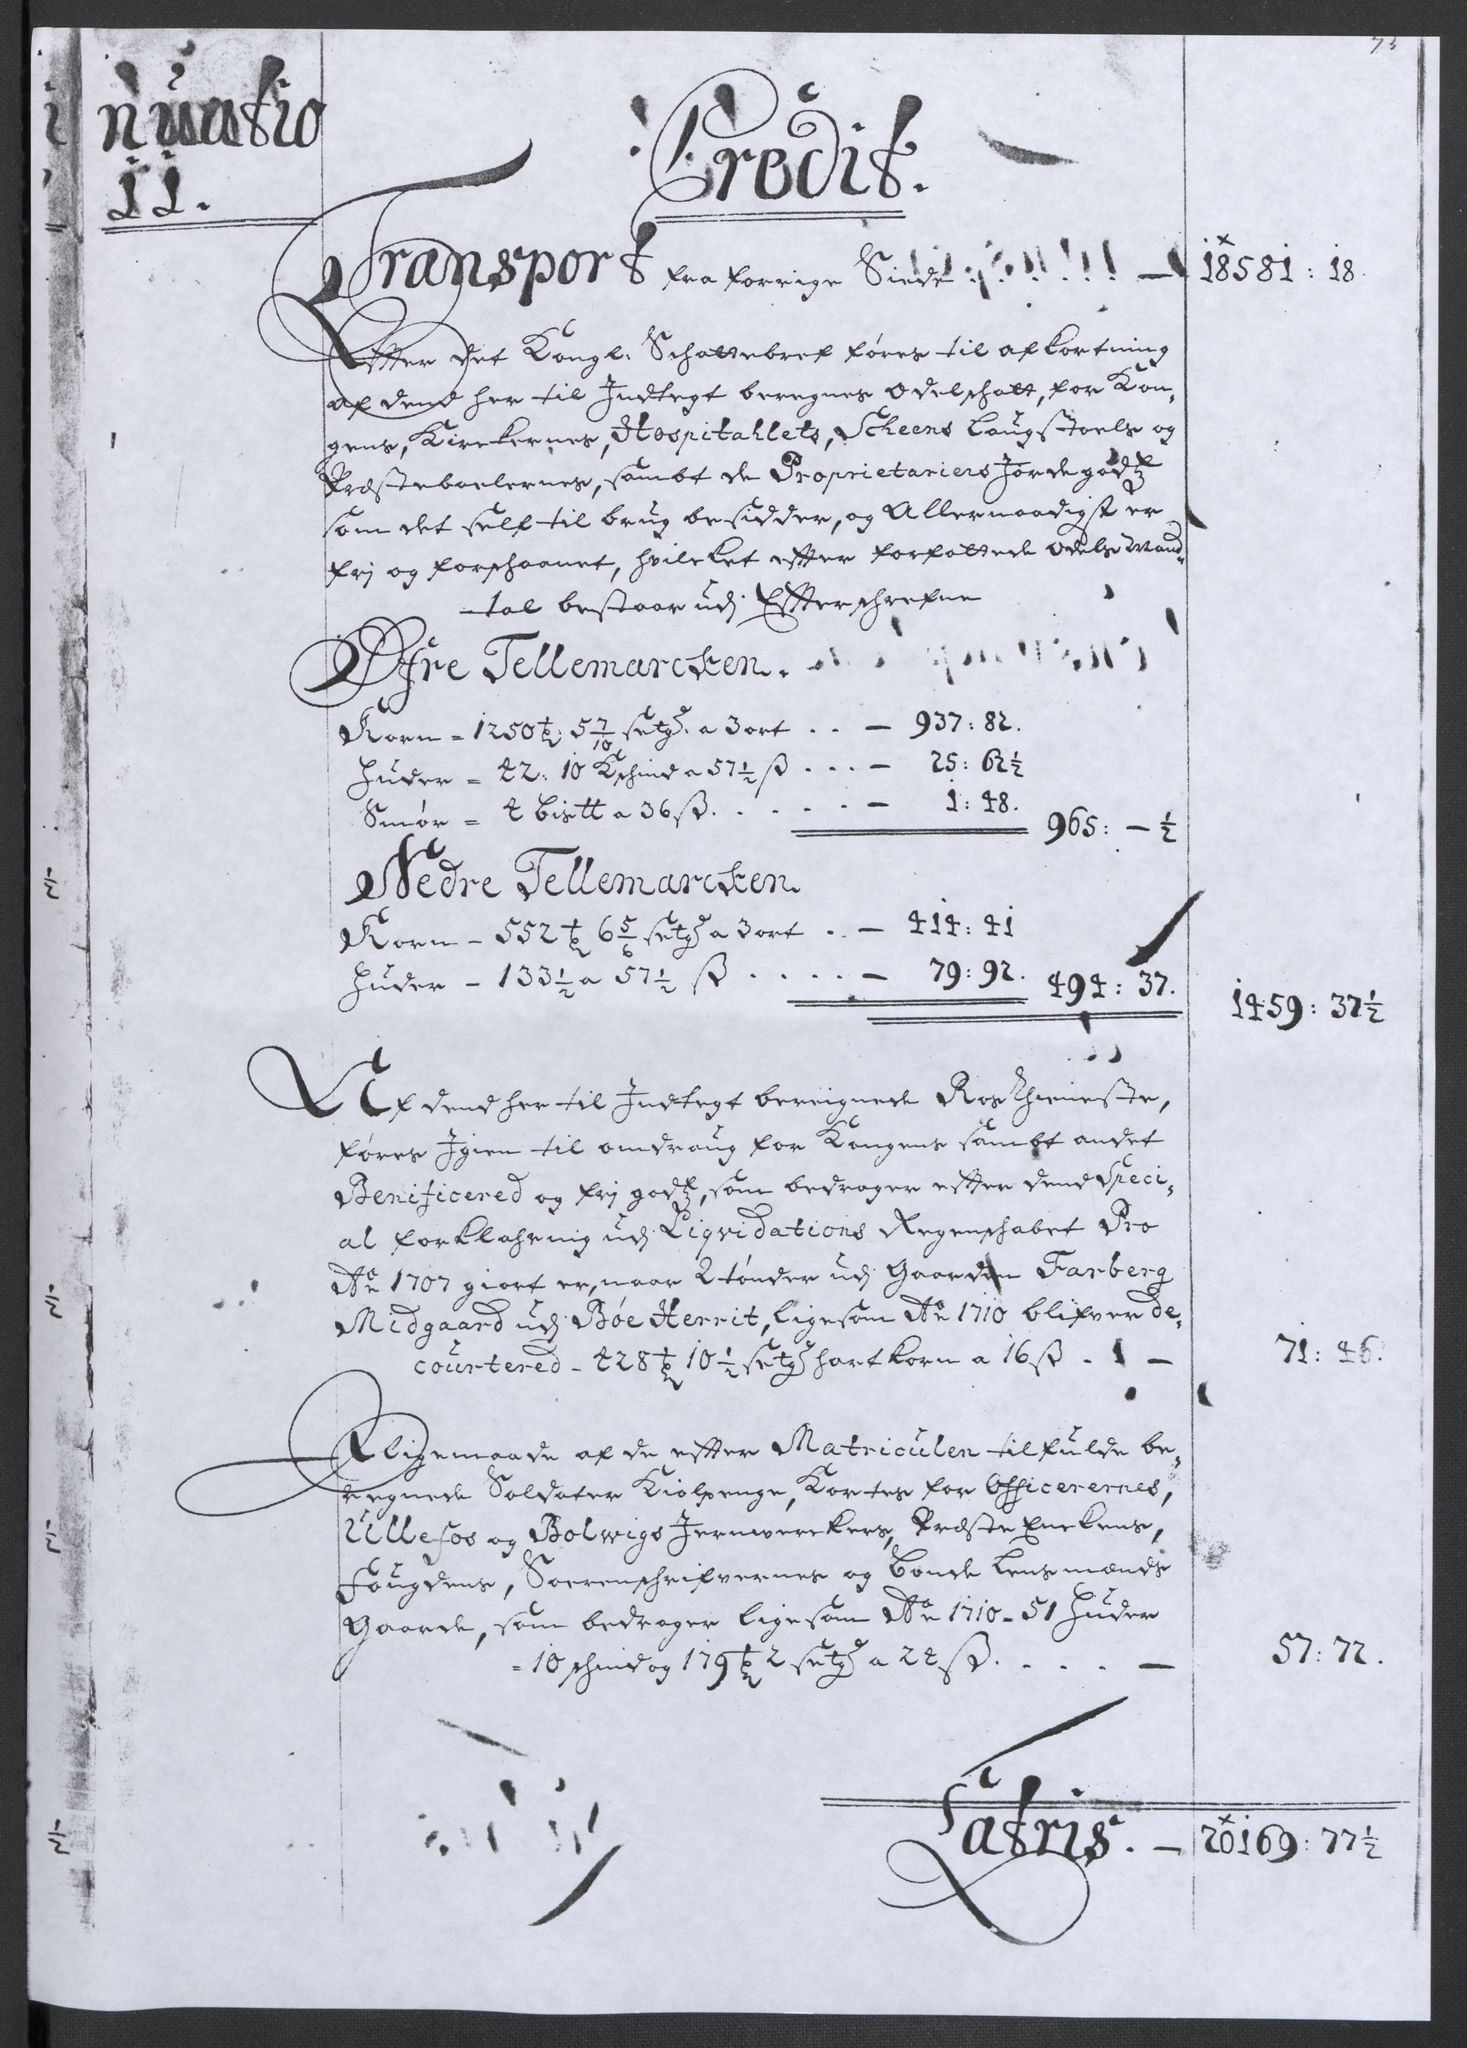 73
nuatio
11.
Credit.
Transport fra forrige Siede — 18581 : 18.
Effter det Kongl. Schattebref føres til afkortning
af dend her til Indtegt beregnes Odelschatt, for Kon-
gens, Kirckernes, Hospitahlets, Scheens Laugstoels og
Præsteboelernes, sambt de Proprietariers Jordegodtz
som det self til brug besidder, og Allernaadigst er
frj og forschaanet, hvilcket effter forfattede Odels Mand-
tal bestaar udj Effterschrefne
Øfre Tellemarcken.
Korn = 1250 t 5 7/10 setg a 3 ort . . — 937 : 82.
Huder = 42 : 10 Kschind a 57½ ß . . . — 25 : 62½
Smør = 4 bis℔ a 36 ß . . . . . — 1 : 48. 965 : — ½
Nedre Tellemarcken
Korn – 552 t 6 5/6 setg a 3 ort . . — 414 : 41
Huder – 133½ a 57½ ß . . . . . — 79 : 92. 494 : 37.
1459 : 37½
Af dend her til Indtegt bereignede Rostthieneste,
føres Igien til omdraug for Kongens sambt andet
Benificered og frj godtz, som bedrager effter dend Speci-
al forklahring udj Liqvidations Regenschabet Pro
Ao 1707 giort er, naar 2 tønder udj Gaarden Farberg
Midgaard udj Bøe Herrit, ligesom Ao 1710 blifver de-
courtered – 428 t 10½ setg hartkorn a 16 ß . . — 71 : 46.
Lligemaade af de effter Matriculen tilfulde be-
regnede Soldater Kiolpenge, Kortes for Officerernes,
Ullefos og Bolwigs Jernwerckers, Præste Enckens,
Fougdens, Sorenschrifvernes og Bonde Lensmænds
Gaarde, som bedrager ligesom Ao 1710 – 51 Huder
= 10 schind og 179 t 2 setg a 24 ß . . . . — 57 : 72.
Latris. — 20169 : 77½